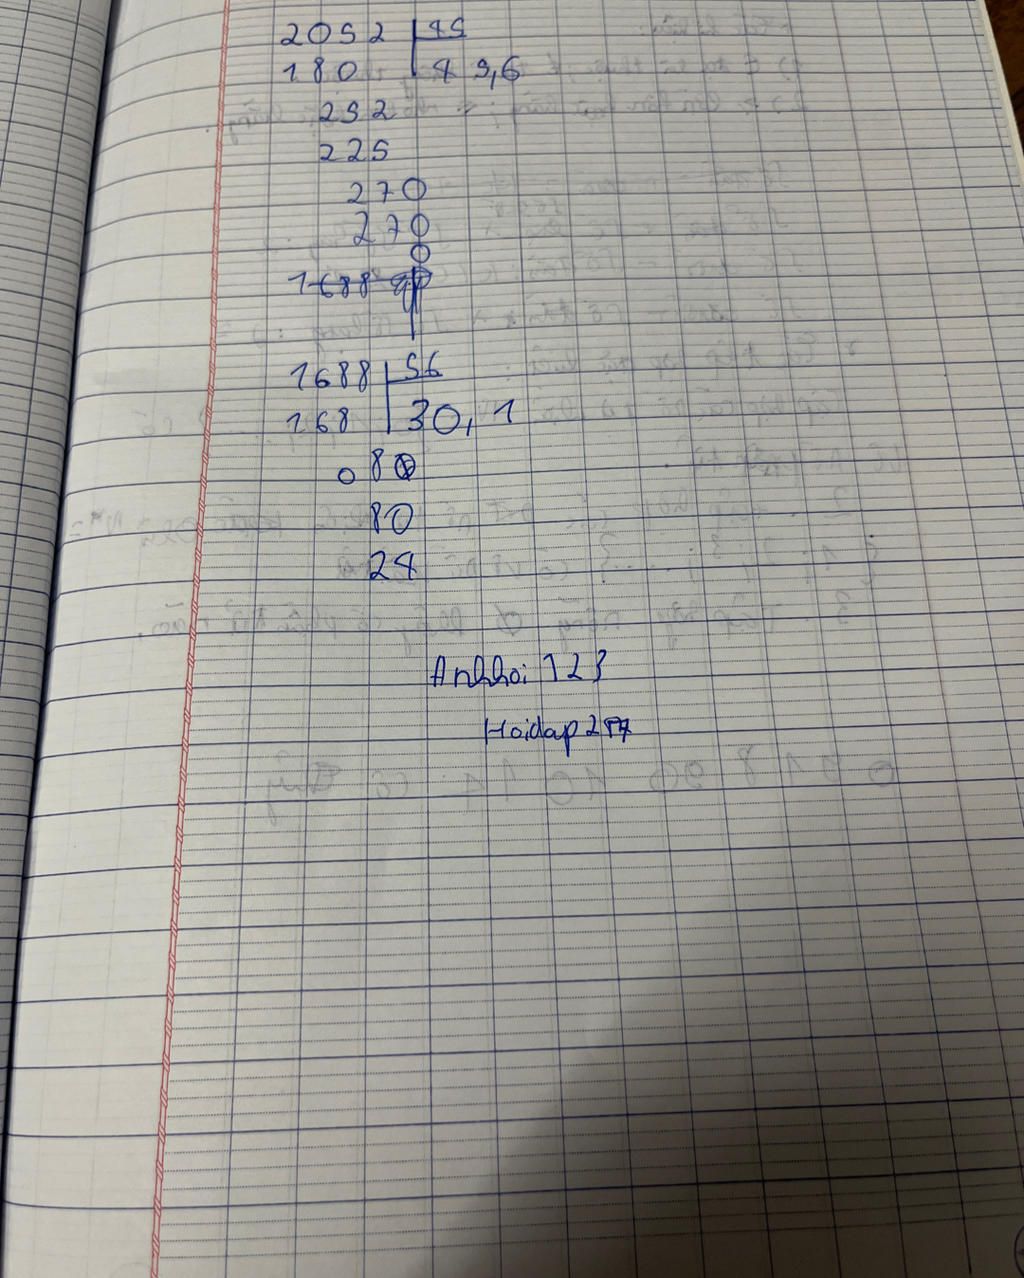 2052 45
180 45,6
252
225
270
270
0
1688
1688 56
168 30,1
080
80
24
Anhhoi 123
Hoidap 247